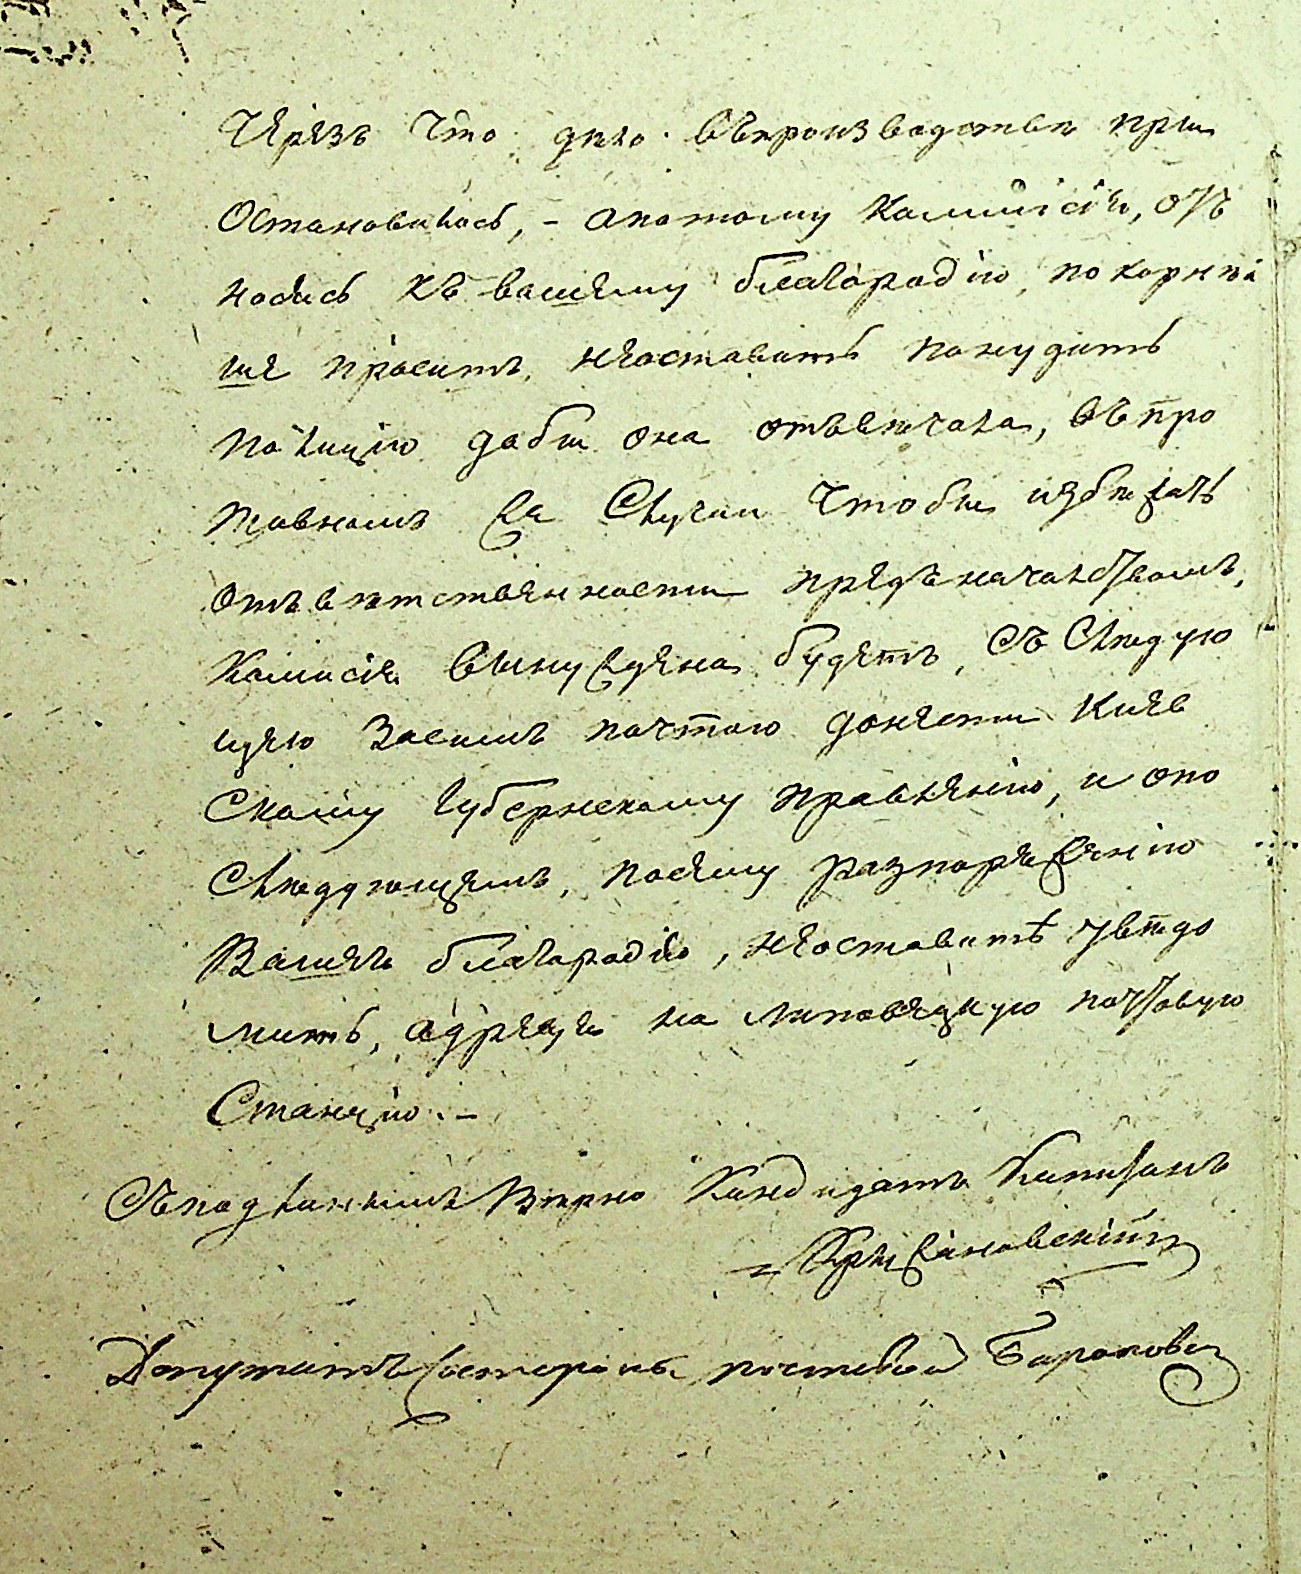 Чрезъ что дѣло въпроизводствѣ при
Остановилось, - апотому Коммисія, от
носясь къ вашему благородію, покорнѣй
ше проситъ, неоставить понудить
полицію дабы она отъвѣчала, въ про
тивномъ же Случаи Чтобы избѣжать
отъвѣтственности предъ начальствомъ,
Комисія вынуждена будетъ, Съ Слѣдую
щею Засимъ почтою донести Кіев
Скому Губернскому правленію, и опо
Слѣдующемъ, посему разпоряженію
Ваше благородіе, неоставить увѣдо
мить, адресуя на липовецкую почтовую
Станцію. -
Съподлиннымъ Вѣрно Кандидатъ Капитанъ
Крыжановскій
Депутатъ Состороны